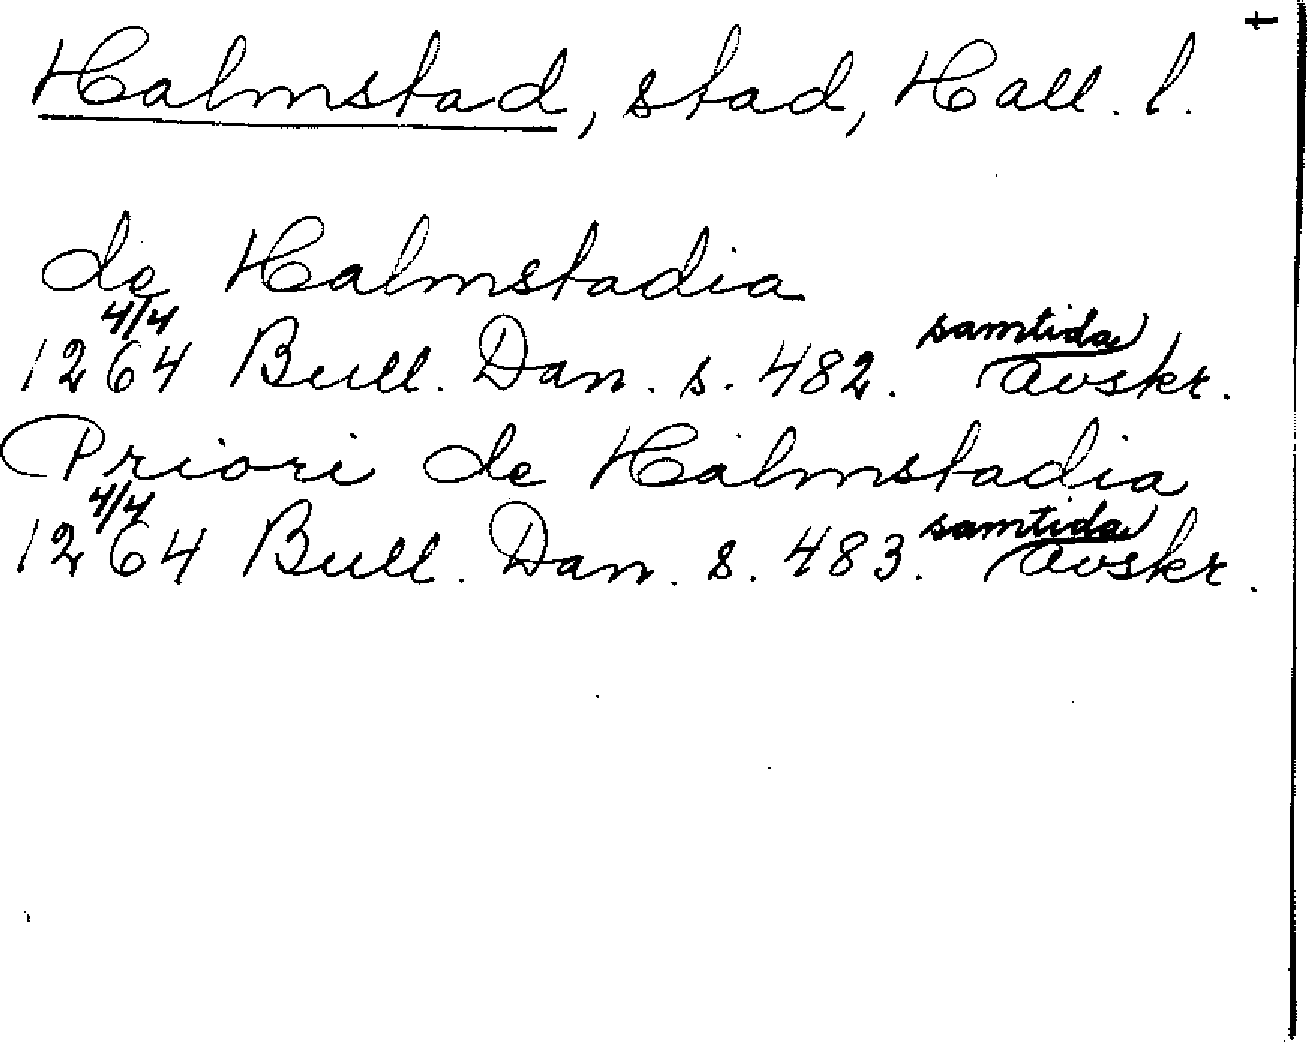 Halmstad, stad, Hall. l.
de Halmstadia
4/4
samtida
1264 Bull. Dan. s. 482. avskr.
Priori de Halmstadia
4/4
samtida
1264 Bull. Dan. s. 483. avskr.